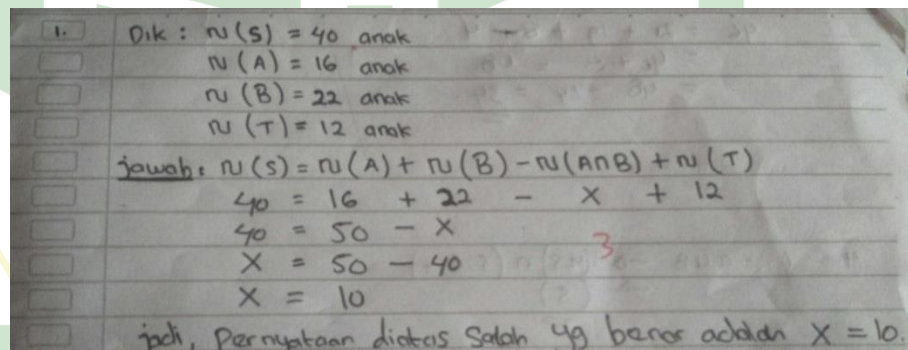 1. Dik : n(S) = 40 anak
n(A) = 16 anak
n(B) = 22 anak
n(T) = 12 anak
jawab : n(S) = n(A) + n(B) - n(A∩B) + n(T)
40 = 16 + 22 - X + 12
40 = 50 - X
X = 50 - 40
3
X = 10
jadi, Pernyataan diatas Salah yg benar adalah X = 10.